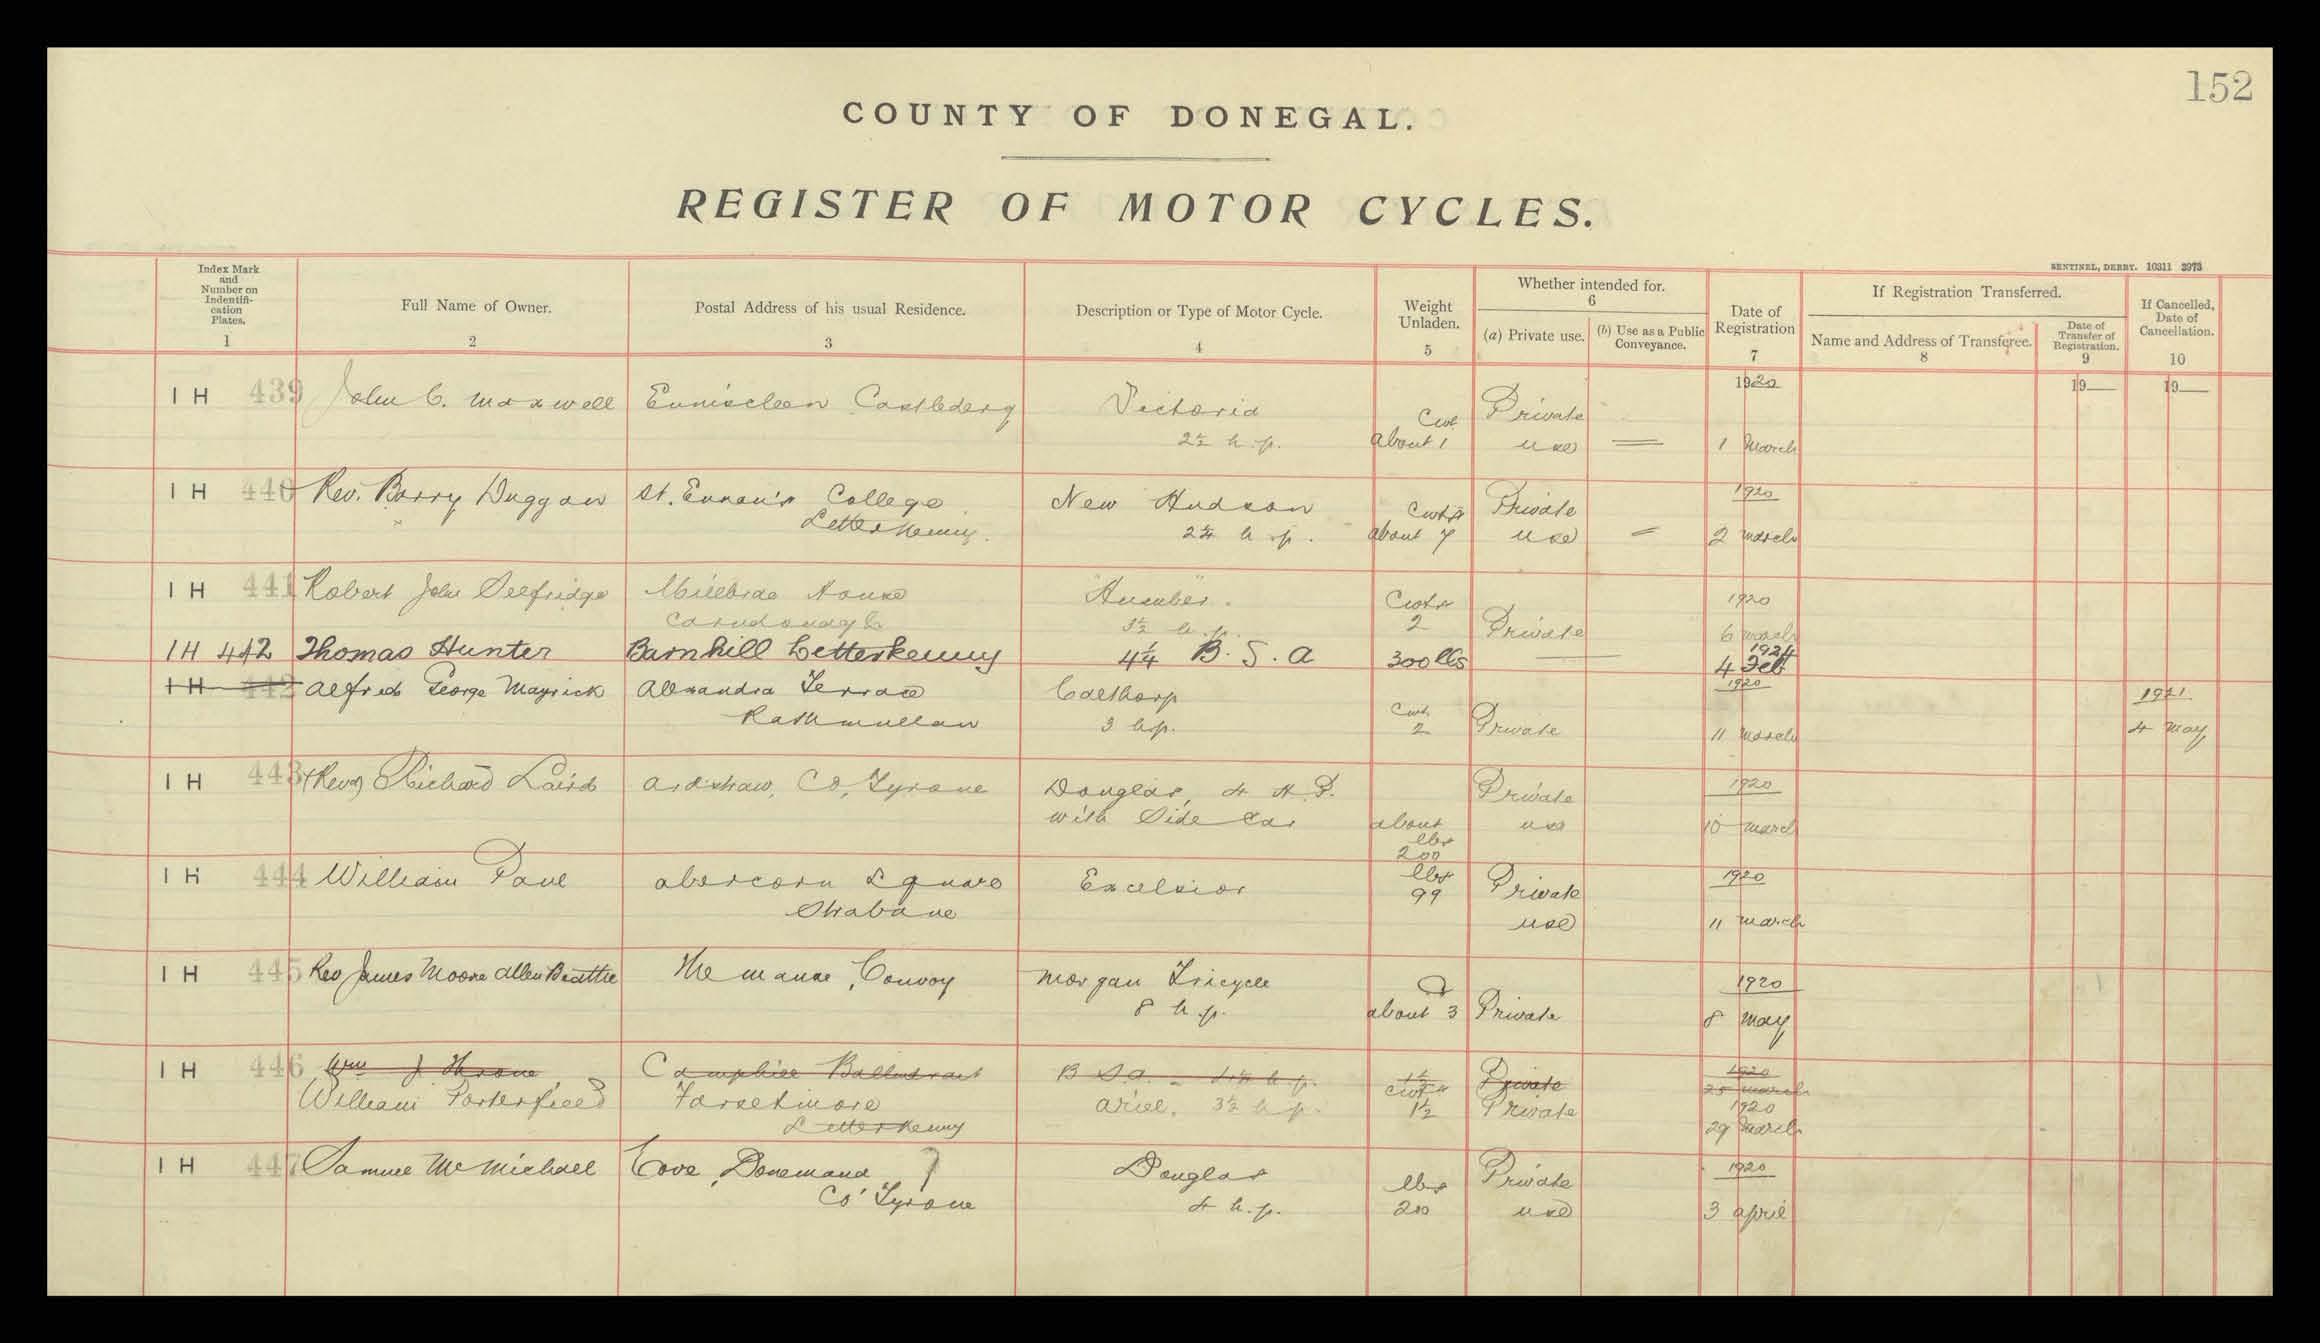 152
COUNTY OF DONEGAL.
REGISTER OF MOTOR CYCLES.
SENTINEL, DERRY. 10311 3973
Index Mark and Number on Indentifi-cation Plates. 1
Full Name of Owner. 2
Postal Address of his usual Residence. 3
Description or Type of Motor Cycle. 4
Weight Unladen. 5
Whether intended for. 6
(a) Private use.
(b) Use as a Public Conveyance.
Date of Registration 7
If Registration Transferred.
Name and Address of Transferee. 8
Date of Transfer of Registration. 9
If Cancelled, Date of Cancellation. 10
1920 19 19
IH 439 John C. Maxwell Castlederg Victoria Cwt Private
2½ h.p. about 1 use 1 March
IH 440 Rev. Barry Duggan St. Eunan's College New Hudson Cwts Private 1920
Letterkenny. h.p. about 7 use 2 March
IH 441 Robert John Selfridge Millbrae House "Humber". Cwts 1920
Carndonagh 3½ h.p. 2 Private 6 March
IH 442 Thomas Hunter Barnhill Letterkenny 4¼ B.S.A 300 lbs 1924 4 Feb
IH 442 Alfred George Mayrick Alexandra Terrace Calthorp 1920 1921
Rathmullan 3 h.p. Cwt 2 Private 11 March 4 May
IH 443 (Revd) Richard Laird Ardstraw, Co, Tyrone Douglas, 4 H.P. Private 1920
with Side Car about lbs 200 use 10 March
IH 444 William Paul Abercorn Square Excelsior lbs 99 Private 1920
Strabane use 11 March
IH 445 Rev James Moore Allen Beattie The Manse, Convoy Morgan Tricycle 1920
8 h.p. about 3 Private 8 May
IH 446 Wm J Throne Camphill Ballindrait B S.A. h.p. Cwts Private 1920 25 March
William Porterfield Farsetmore Ariel. 3½ h.p. 1½ Private 1920
Letterkenny 29 March
IH 447 Samuel McMichael Cove, Donemana Douglas lbs Private 1920
Co' Tyrone 4 h.p. 200 use 3 April